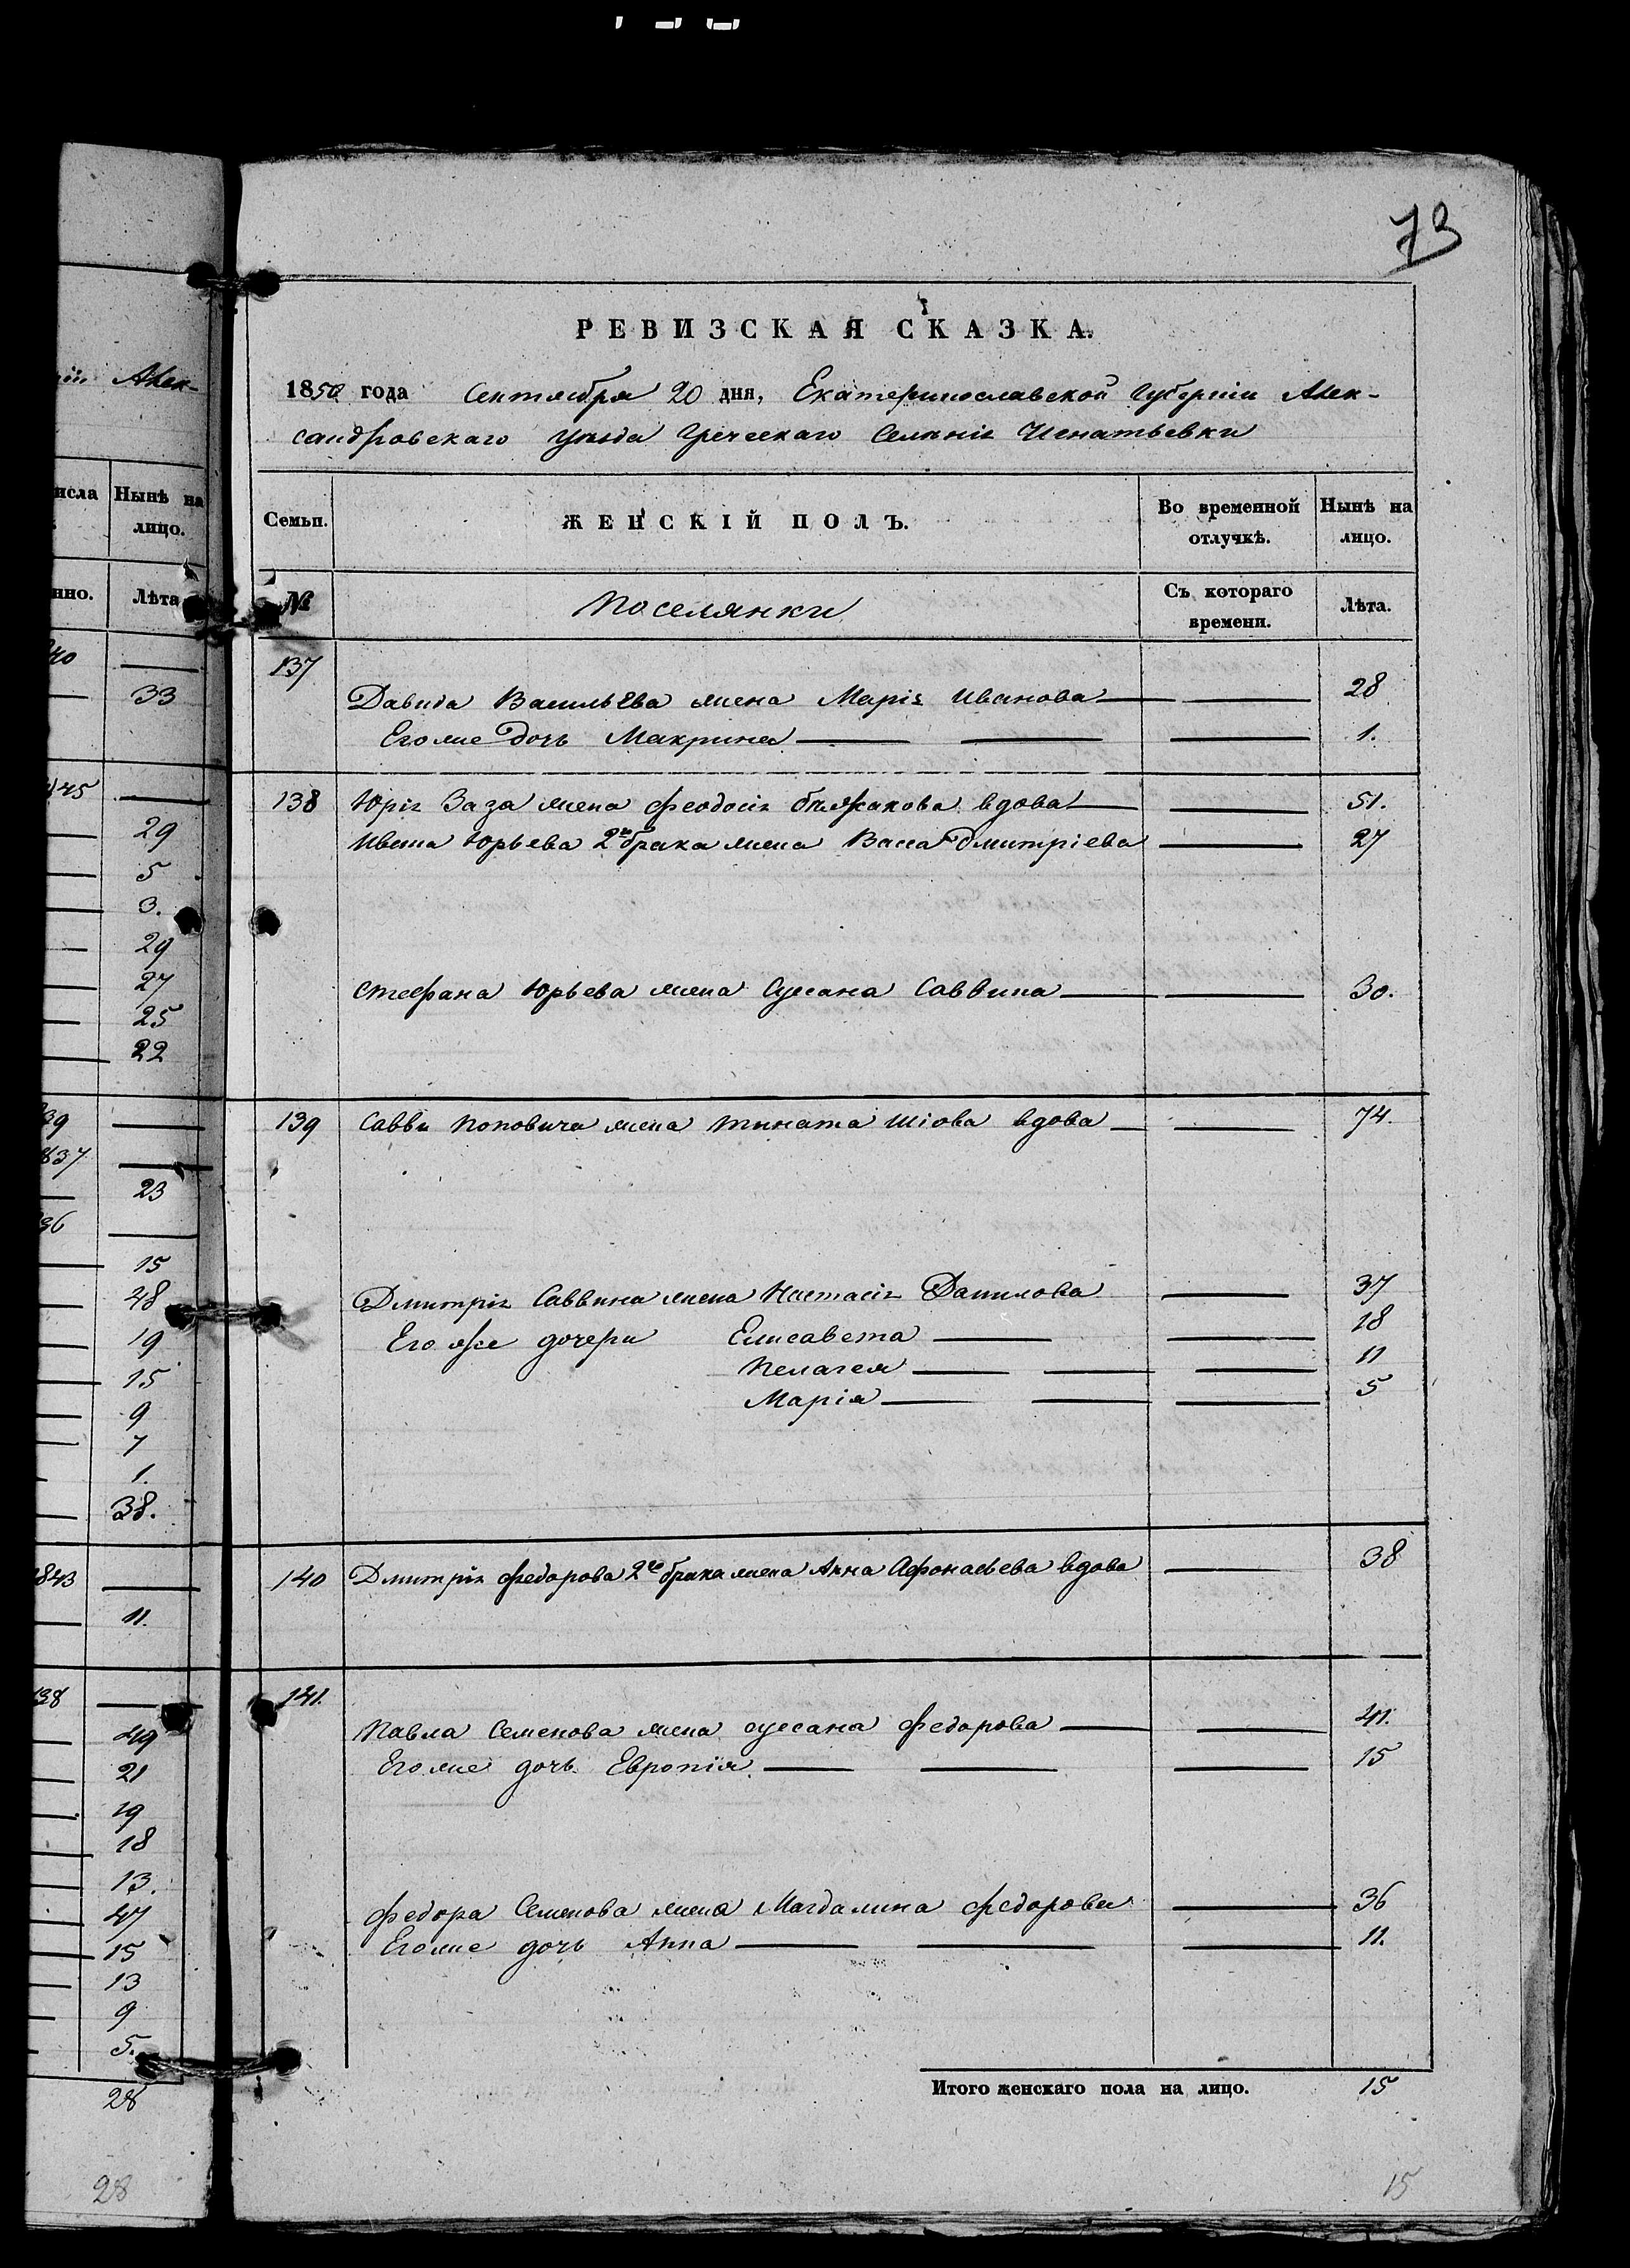 73
РЕВИЗСКАЯ СКАЗКА.
1850 года Сентября 20 дня, Екатеринославской Губерніи Алек-
сандровскаго уѣзда Греческаго Селѣнія Игнатьевки
Семьи. ЖЕНСКІЙ ПОЛЪ. Во временной отлучкѣ. Нынѣ на лицо.
№ Поселянки Съ котораго времени. Лѣта.
137
Давида Васильева жена Марія Иванова 28
Его же дочь Макрина 1.
138 Юрія Заза жена Феодосія вдова 51.
Ивана Юрьева 2го брака жена Васса Дмитріева 27
Стефана Юрьева жена Сусана Саввина 30.
139 Саввы Поповича жена Тината Шіова вдова 74.
Дмитрія Саввина жена Настасія Данилова 37
Его же дочери Елисавета 18
Пелагея 11
Марія 5
140 Дмитрія Федорова 2го брака жена Анна Афонасьева вдова 38
141.
Павла Семенова жена Сусана Федорова 41.
Его же дочь Европія 15
Федора Семенова жена Магдалина Федорова 36
Его же дочь Анна 11.
Итого женскаго пола на лицо. 15
15
Алек-
исла Нынѣ на
лицо.
нно. Лѣта
40
33
145
29
5
3.
29
27
25
22
39
837
23
36
15
48
19
15
9
7
1.
38.
843
11.
38
49
21
19
18
13.
47
15
13
9
5.
28
28